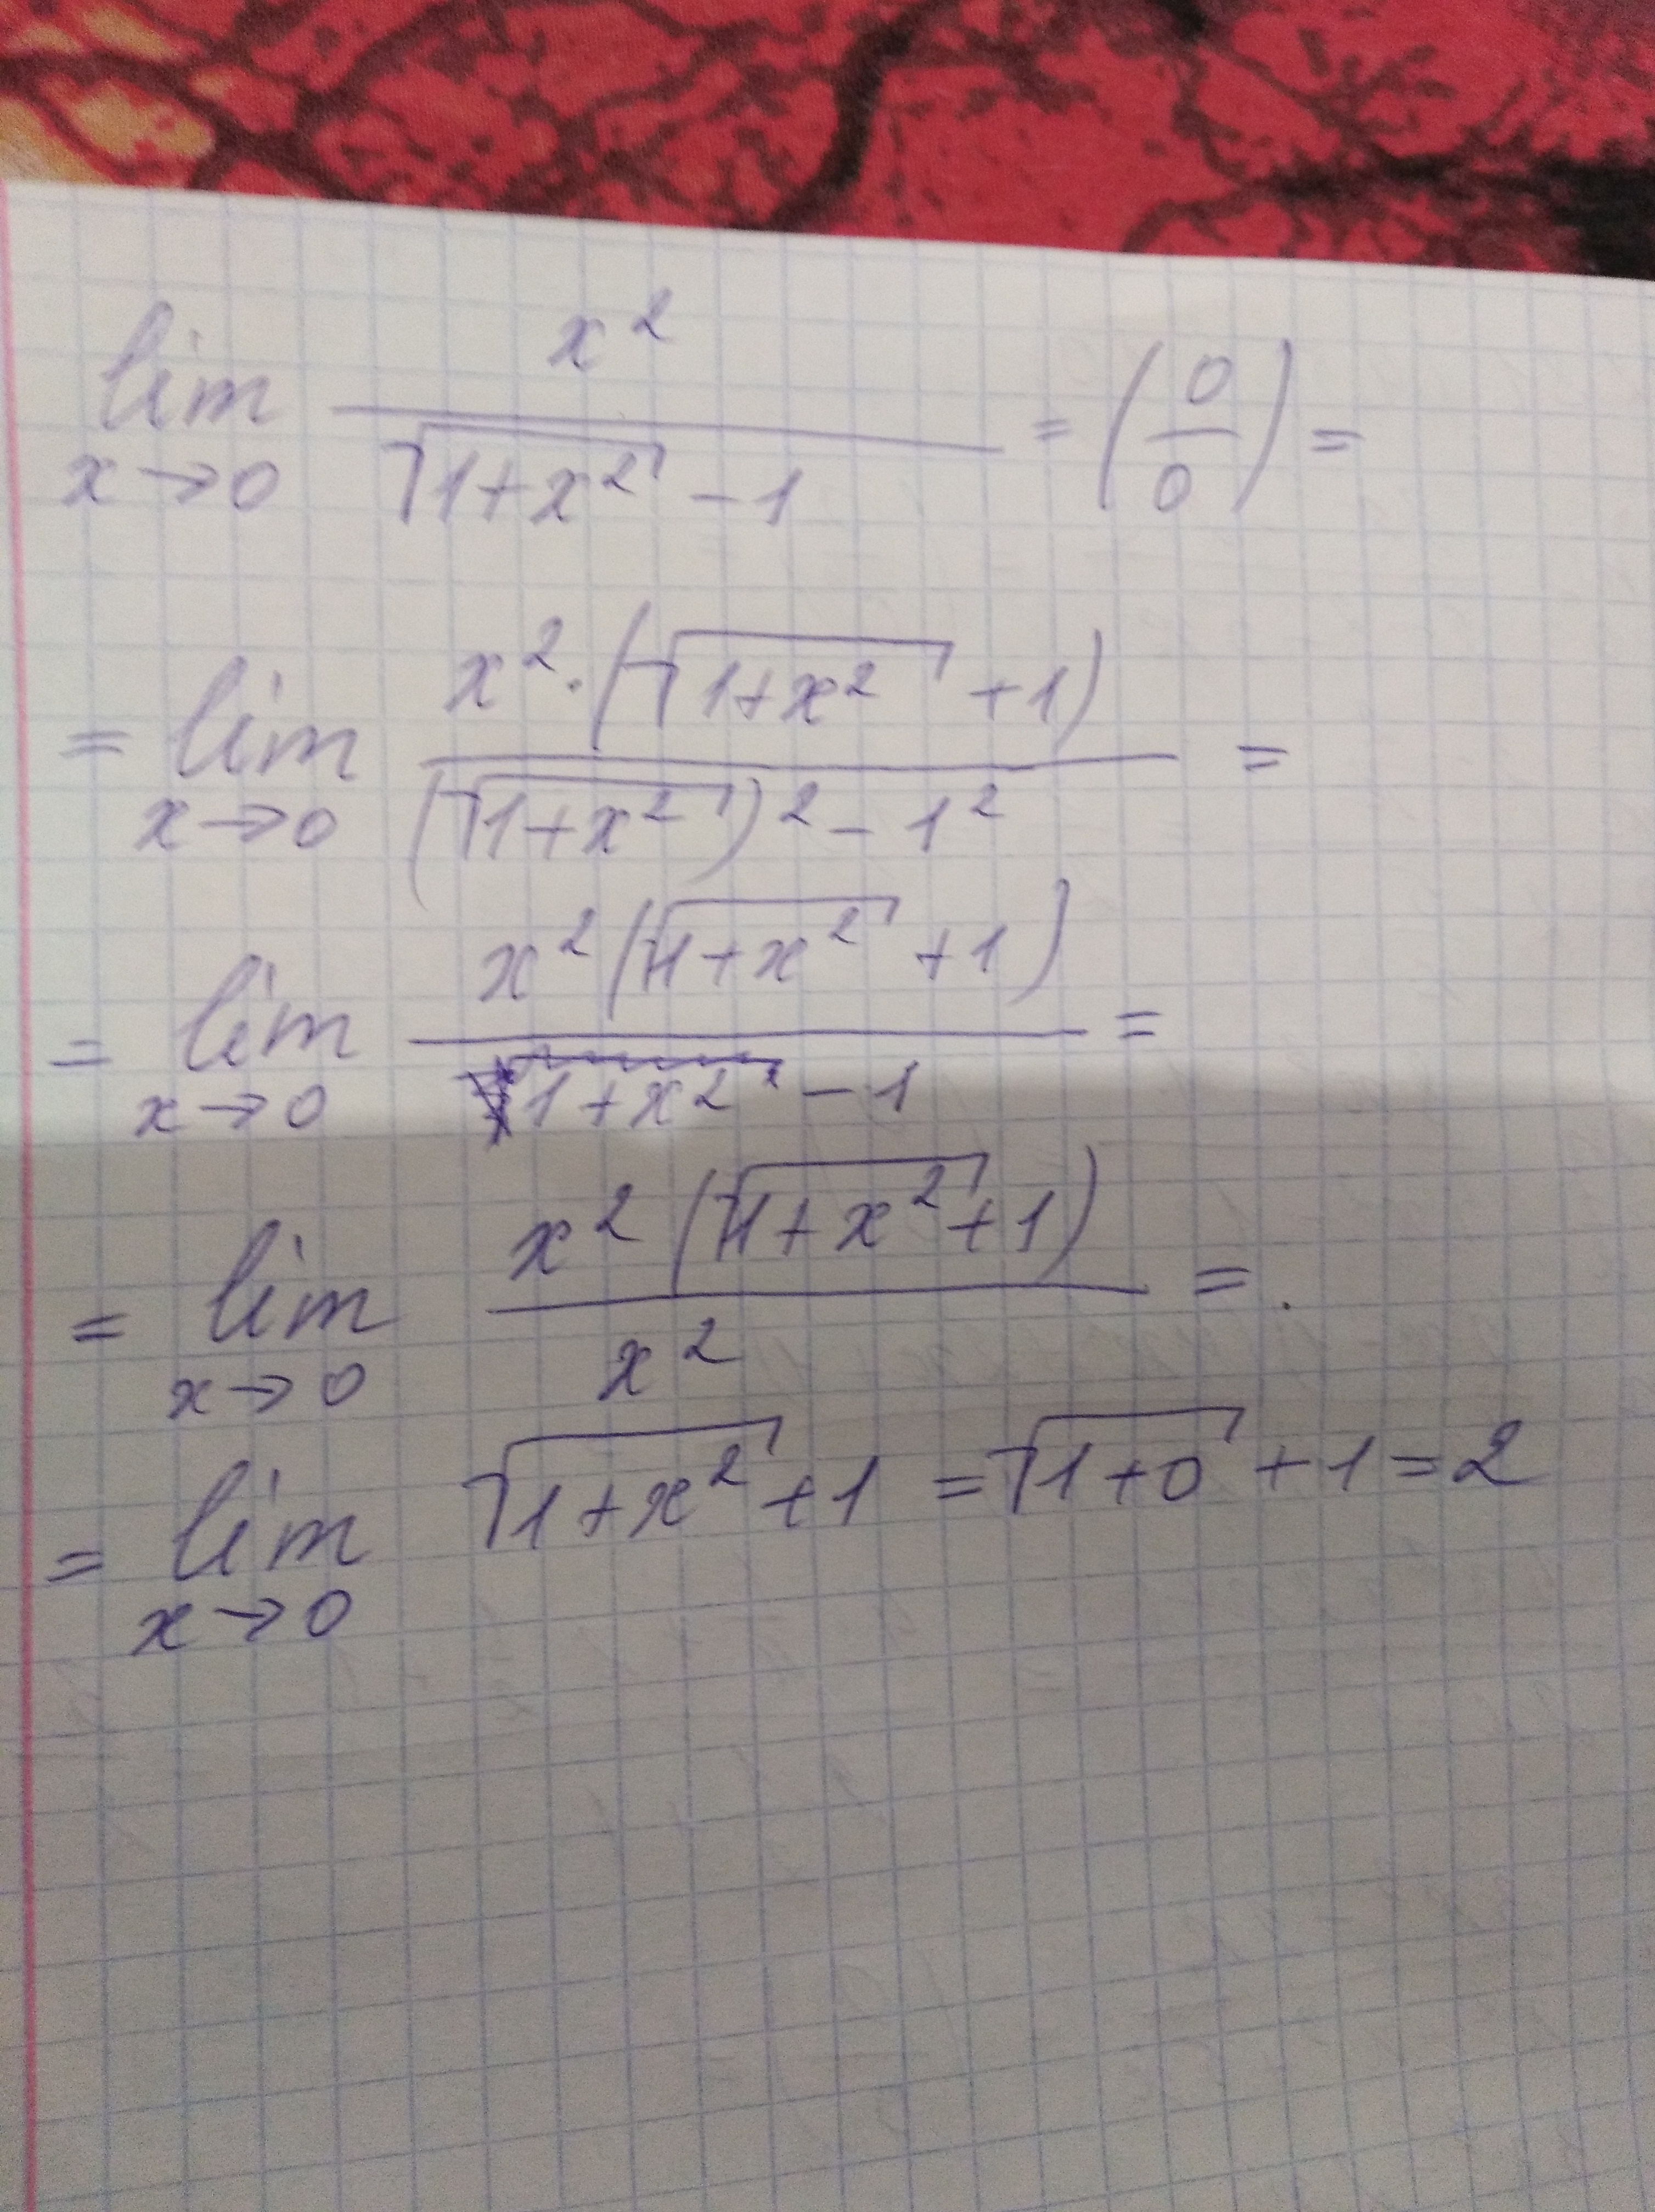 lim x→0 x² / (√(1+x²) - 1) = (0/0) =
= lim x→0 x²·(√(1+x²) + 1) / ((√(1+x²))² - 1²) =
= lim x→0 x²(√(1+x²) + 1) / (1+x² - 1) =
= lim x→0 x²(√(1+x²) + 1) / x² =
= lim x→0 √(1+x²) + 1 = √(1+0) + 1 = 2